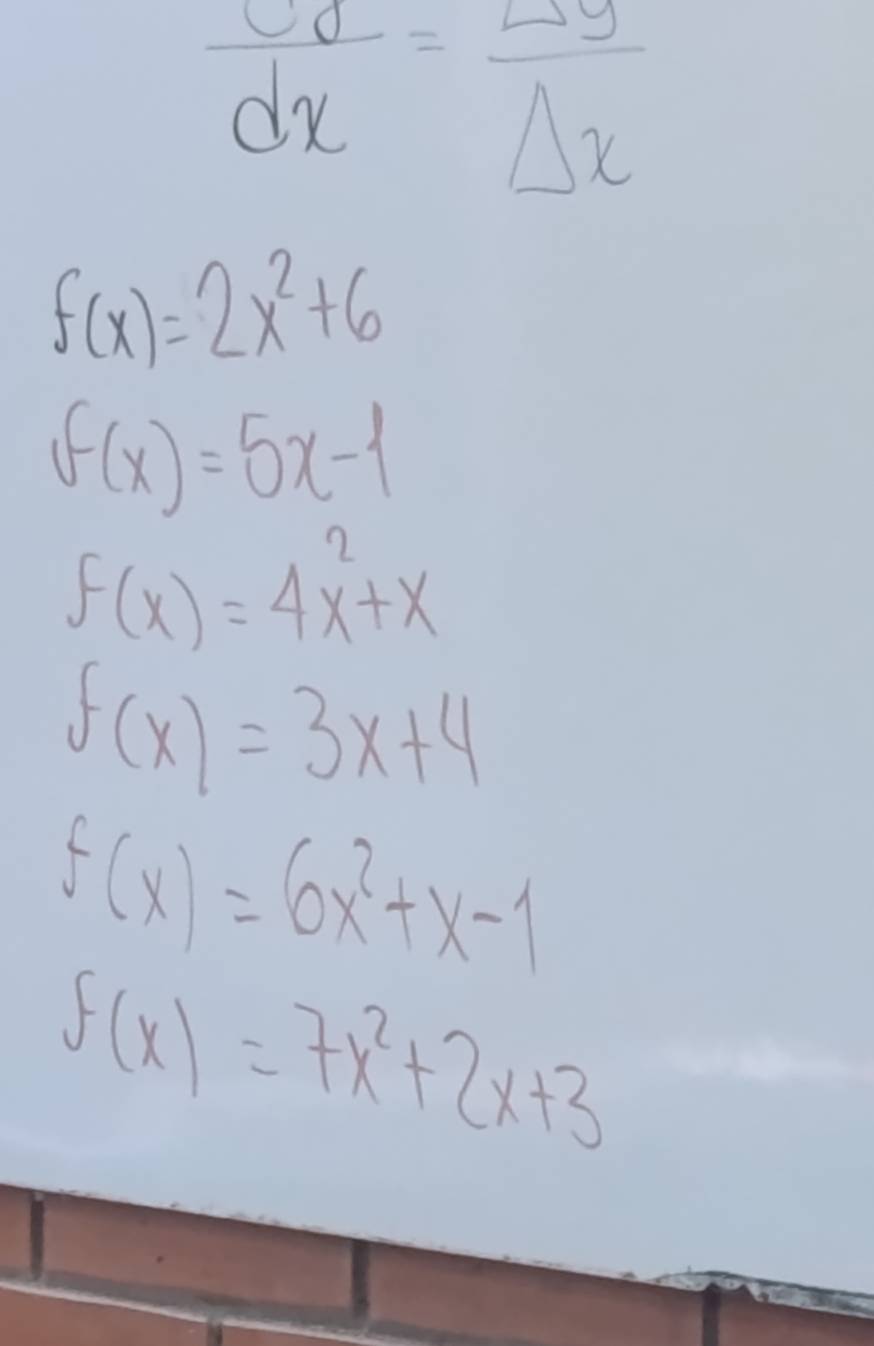 dy/dx = Δy/Δx
f(x)=2x²+6
f(x)=5x-1
f(x)=4x²+x
f(x)=3x+4
f(x)=6x²+x-1
f(x)=7x²+2x+3